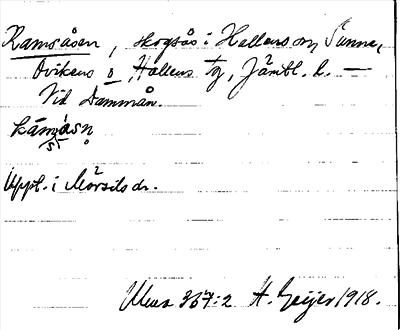 Ramsåsen, skogsås i Hallens sn, Sunne,
Ovikens o Hallens tg, Jämtl. l. —
Vid Dammån.
Uppl. i Mörsils dr.
Ms 367:2 H. Geijer 1918.